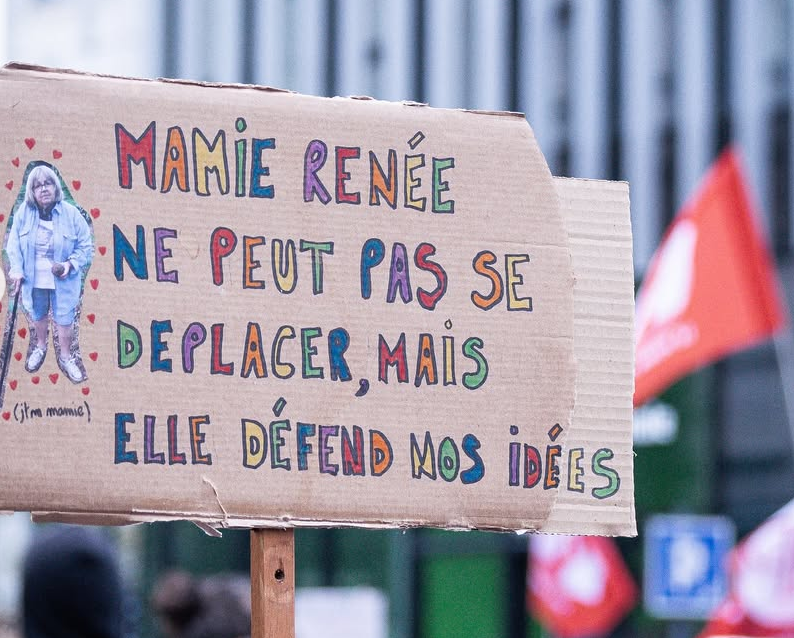 MAMIE RENÉE
NE PEUT PAS SE
DEPLACER, MAIS
ELLE DÉFEND NOS IDÉES
(jtm mamie)
P